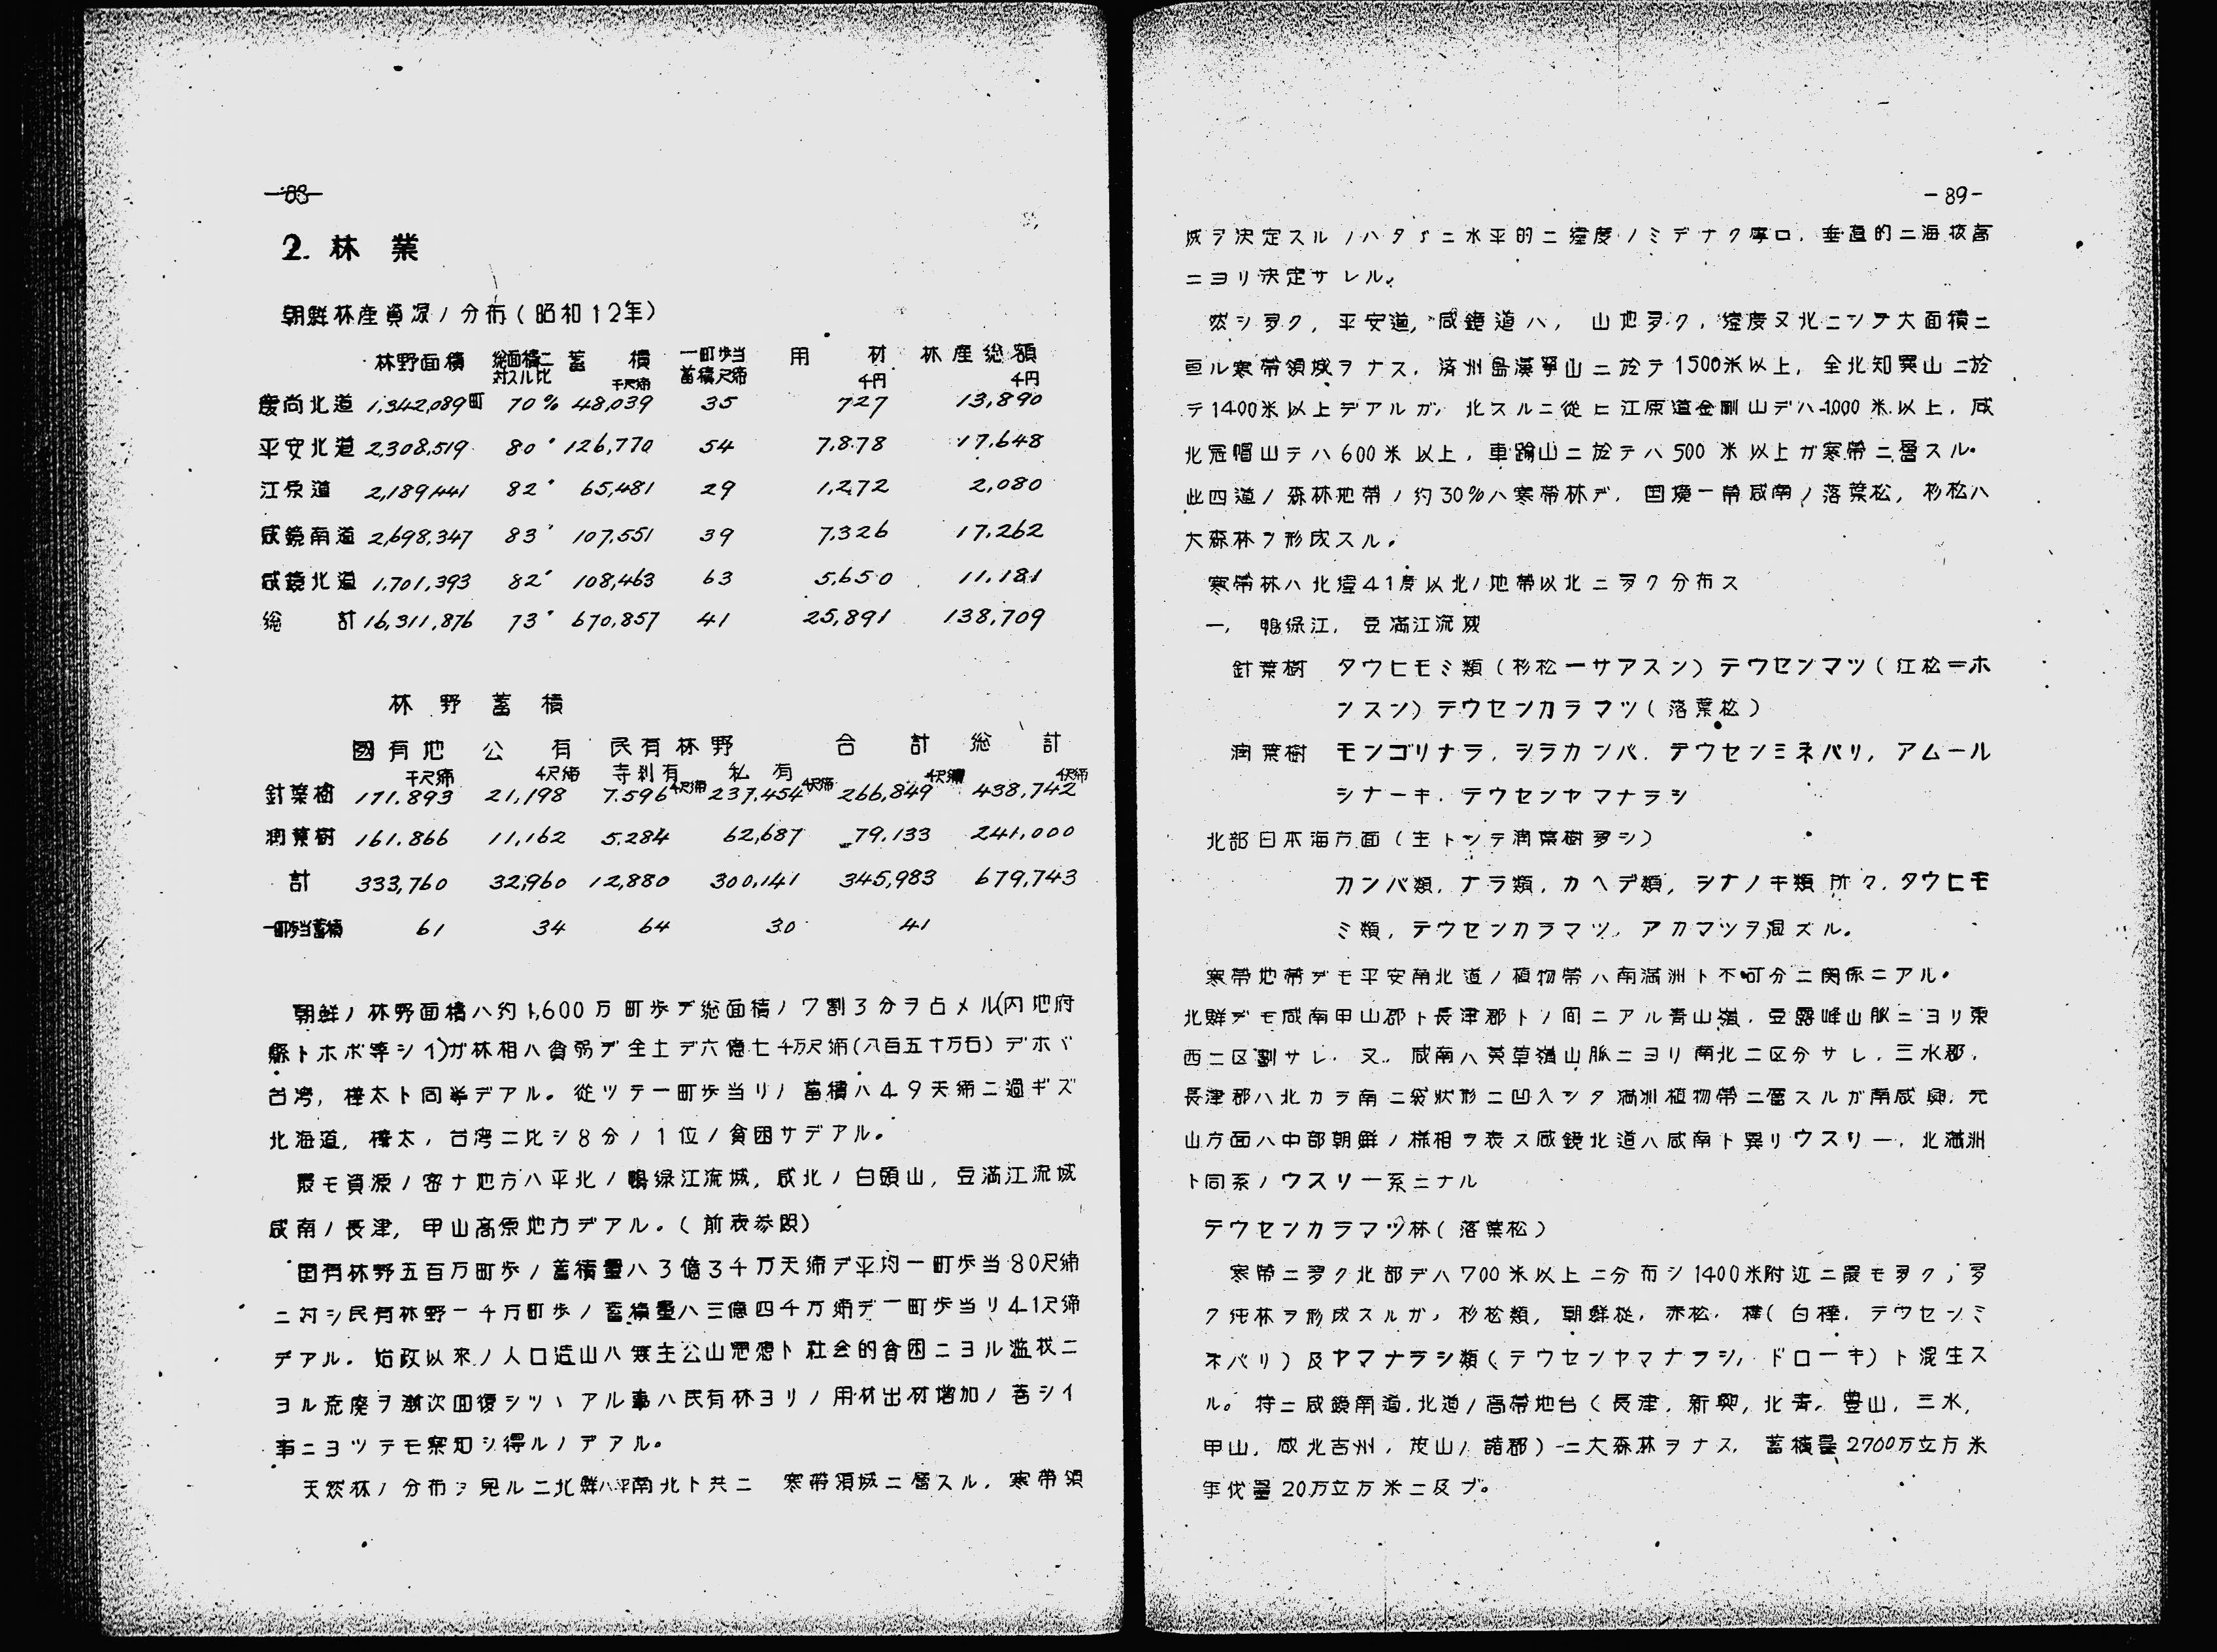 -88-
2. 林業
朝鮮林産資源ノ分布(昭和12年)
林野面積 総面積ニ対スル比 蓄積千尺締 一町歩当蓄積尺締 用材千円 林産総額千円
慶尚北道 1,342,089町 70% 48,039 35 727 13,890
平安北道 2,308,519 80〃 126,770 54 7,878 17,648
江原道 2,189,441 82〃 65,481 29 1,272 2,080
咸鏡南道 2,698,347 83〃 107,551 39 7,326 17,262
咸鏡北道 1,701,393 82〃 108,463 63 5,650 11,181
総計 16,311,876 73〃 670,857 41 25,891 138,709
林野蓄積
國有地 公有 民有林野 合計 総計
千尺締 千尺締 寺刹有千尺締 私有千尺締 千尺締 千尺締
針葉樹 171.893 21,198 7.596 237.454 266,849 438,742
濶葉樹 161.866 11,162 5.284 62,687 79.133 241,000
計 333,760 32,960 12,880 300,141 345,983 679,743
一町歩当蓄積 61 34 64 30 41
朝鮮ノ林野面積ハ約1,600万町歩デ総面積ノ7割3分ヲ占メル(内地府
縣トホボ等シイ)ガ林相ハ貧弱デ全土デ六億七千万尺締(八百五十万石)デホヾ
台湾, 樺太ト同等デアル。従ツテ一町歩当リノ蓄積ハ49尺締ニ過ギズ
北海道, 樺太, 台湾ニ比シ8分ノ1位ノ貧困サデアル。
最モ資源ノ密ナ地方ハ平北ノ鴨緑江流域, 咸北ノ白頭山, 豆満江流域
咸南ノ長津, 甲山高原地方デアル。(前表参照)
国有林野五百万町歩ノ蓄積量ハ3億3千万尺締デ平均一町歩当80尺締
ニ対シ民有林野一千万町歩ノ蓄積量ハ三億四千万締デ一町歩当リ41尺締
デアル. 始政以來ノ人口造山ハ無主公山思想ト社会的貧困ニヨル濫伐ニ
ヨル荒廃ヲ漸次回復シツヽアル事ハ民有林ヨリノ用材出材増加ノ著シイ
事ニヨツテモ察知シ得ルノデアル。
天然林ノ分布ヲ見ルニ北鮮ハ平南北ト共ニ 寒帯領域ニ屬スル. 寒帯領
-89-
域ヲ決定スルノハタダニ水平的ニ緯度ノミデナク寧ロ, 垂直的ニ海抜高
ニヨリ決定サレル.
然シ多ク, 平安道, 咸鏡道ハ, 山地多ク, 緯度又北ニシテ大面積ニ
亘ル寒帯領域ヲナス. 済州島漢拏山ニ於テ1500米以上, 全北知異山ニ於
テ1400米以上デアルガ, 北スルニ従ヒ江原道金剛山デハ1,000米以上, 咸
北冠帽山テハ600米以上, 車踰山ニ於テハ500米以上ガ寒帯ニ屬スル.
此四道ノ森林地帯ノ約30%ハ寒帯林デ, 国境一帯咸南ノ落葉松, 杉松ハ
大森林ヲ形成スル.
寒帯林ハ北緯41度以北ノ地帯以北ニ多ク分布ス
一, 鴨緑江, 豆満江流域
針葉樹 タウヒモミ類(杉松ーサアスン)テウセンマツ(江松=ホ
ンスン)テウセンカラマツ(落葉松)
濶葉樹 モンゴリナラ, シラカンバ, テウセンミネバリ, アムール
シナーキ, テウセンヤマナラシ
北部日本海方面(主トシテ濶葉樹多シ)
カンバ類, ナラ類, カヘデ類, シナノキ類 所々, タウヒモ
ミ類, テウセンカラマツ, アカマツヲ混ズル.
寒帯地帯デモ平安南北道ノ植物帯ハ南満洲ト不可分ニ関係ニアル.
北鮮デモ咸南甲山郡ト長津郡トノ間ニアル青山嶺, 豆露峰山脈ニヨリ東
西ニ区劃サレ, 又, 咸南ハ英草嶺山脈ニヨリ南北ニ区分サレ, 三水郡,
長津郡ハ北カラ南ニ袋状形ニ凹入シタ満洲植物帯ニ屬スルガ南咸興, 元
山方面ハ中部朝鮮ノ様相ヲ表ス咸鏡北道ハ咸南ト異リウスリー, 北満洲
ト同系ノウスリー系ニナル
テウセンカラマツ林(落葉松)
寒帯ニ多ク北部デハ700米以上ニ分布シ1400米附近ニ最モ多ク, 多
ク純林ヲ形成スルガ, 杉松類, 朝鮮樅, 赤松, 樺(白樺, テウセンミ
ネバリ)及ヤマナラシ類(テウセンヤマナラシ, ドローキ)ト混生ス
ル。特ニ咸鏡南道, 北道ノ高帯地台(長津, 新興, 北青, 豊山, 三水,
甲山, 咸北吉州, 茂山ノ諸郡)ニ大森林ヲナス. 蓄積量2700万立方米
年伐量20万立方米ニ及ブ。